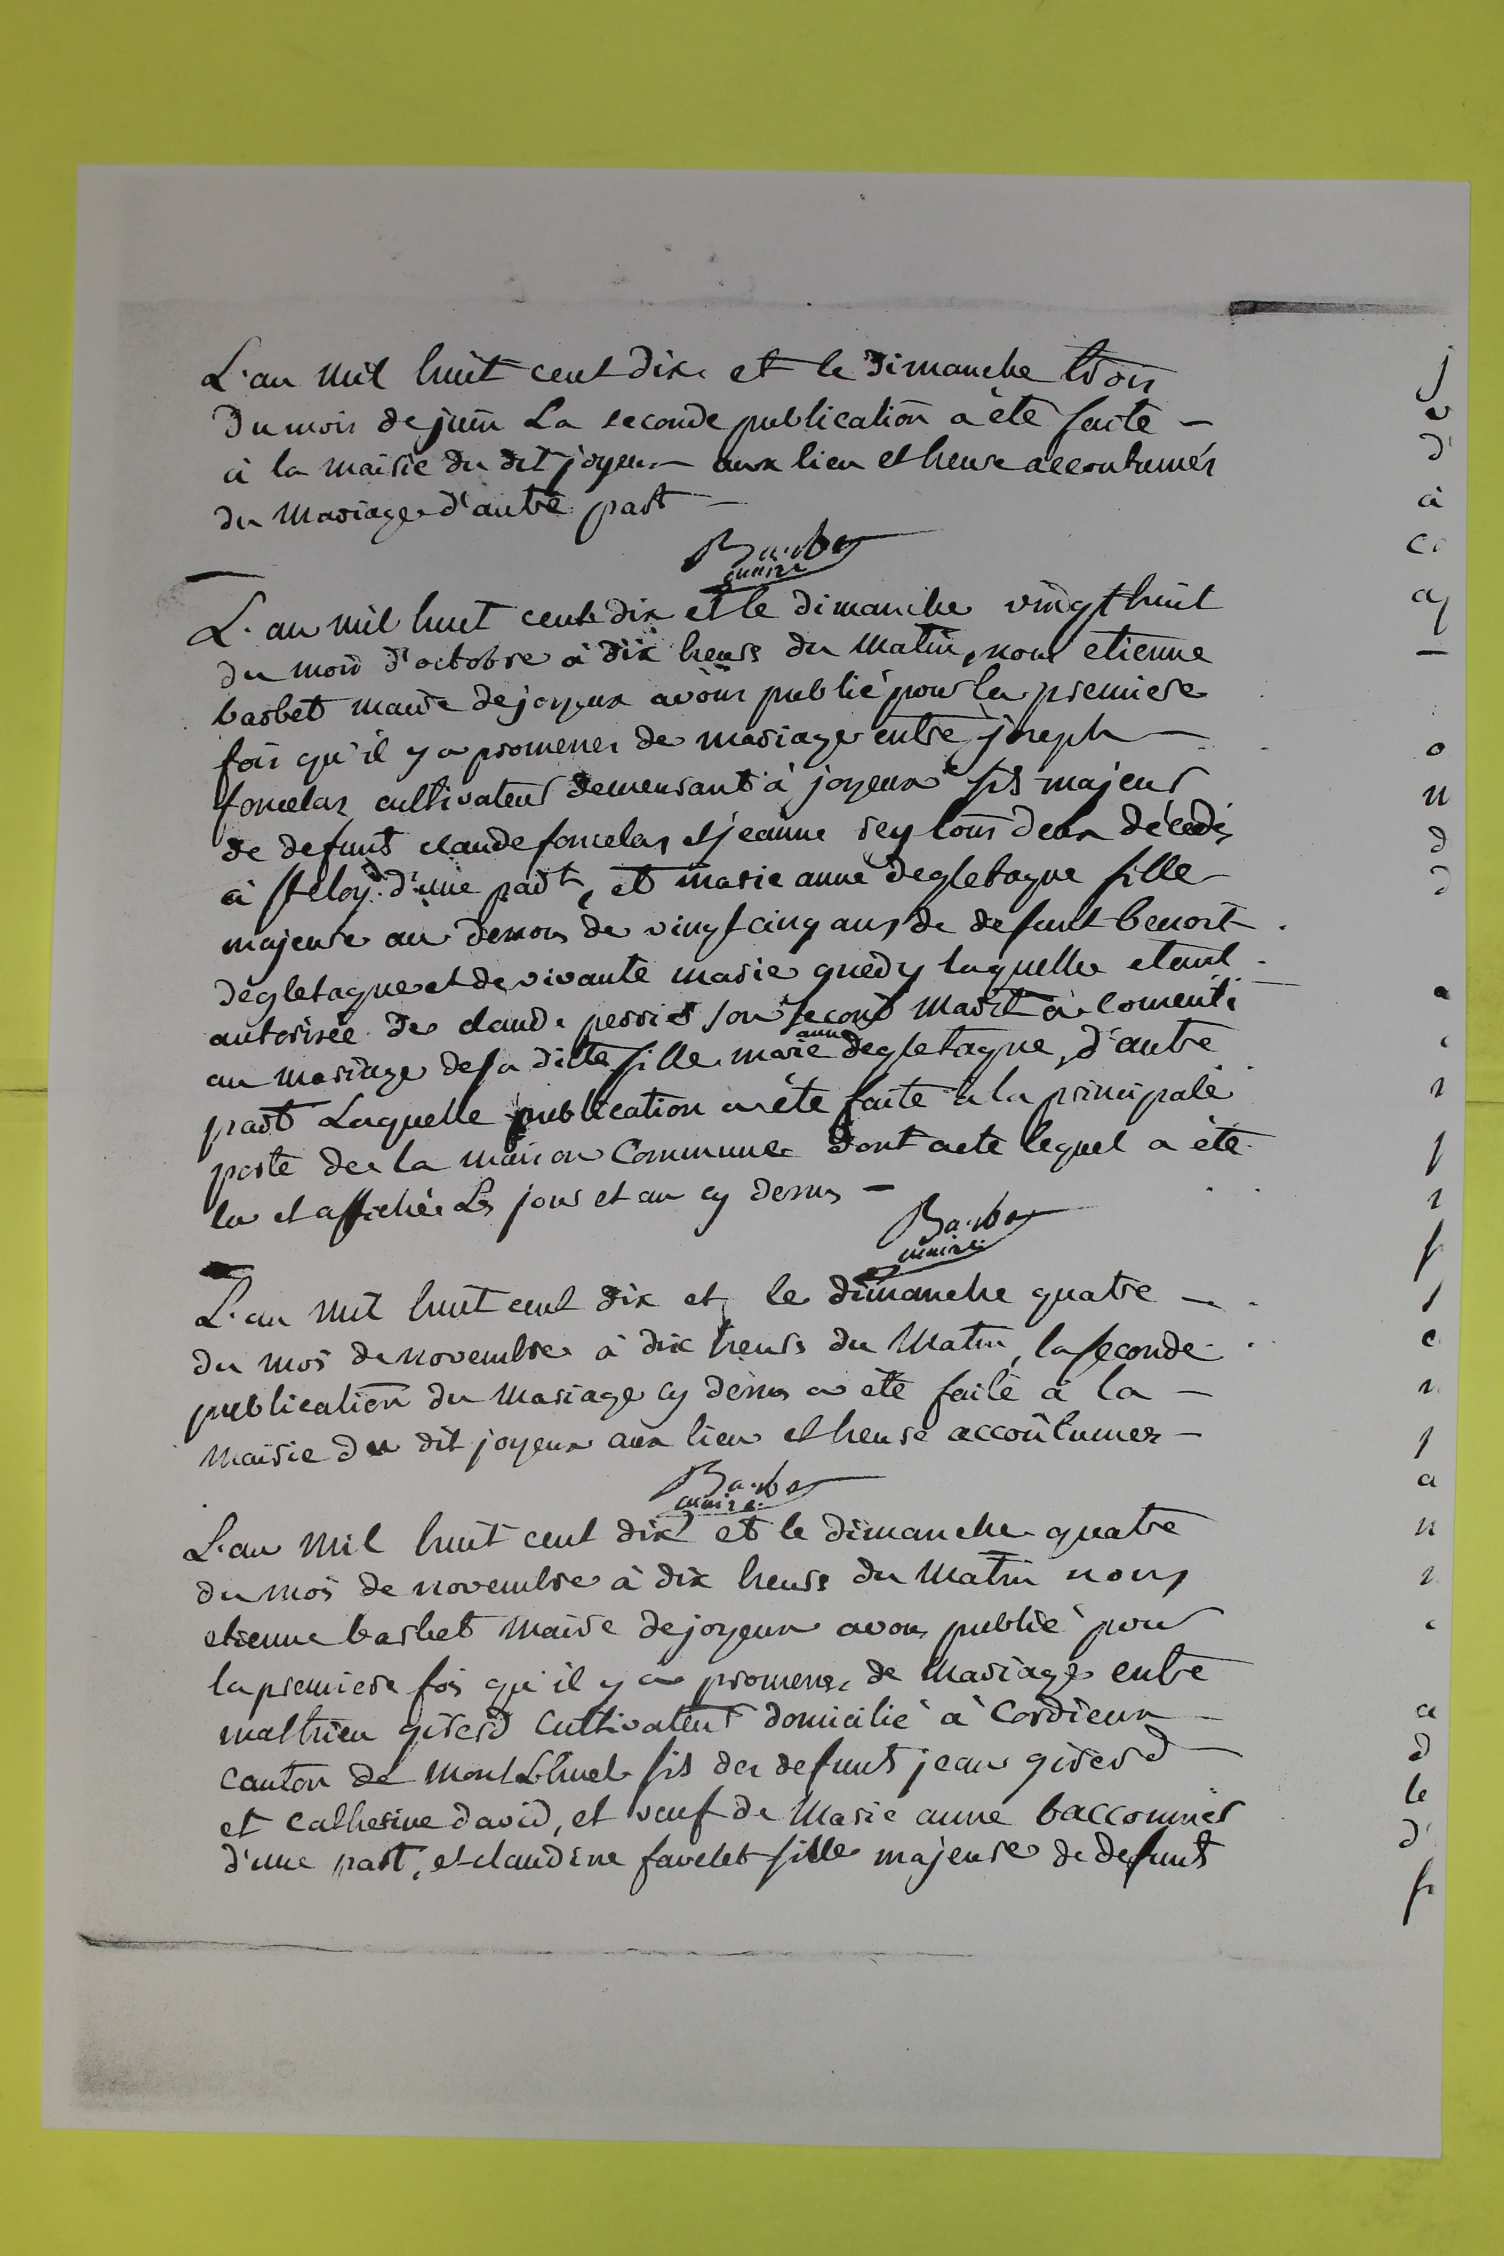 L'an mil huit cent dix et le dimanche trois
du mois de juin La seconde publication a été faite –
à la mairie du dit joyeux aux lieu et heure accoutumés
du mariage d'autre part –
Barbet
maire
L'an mil huit cent dix et le dimanche vingt huit
du mois d'octobre à dix heures du matin, nous etienne
barbet maire de joyeux avons publié pour la premiere
fois qu'il y a promesses de mariage entre joseph –
foncelas cultivateur demeurant à joyeux fils majeur
de defunts claude foncelas et jeanne reylons deux décédés
à St eloy d'une part, et marie anne degletagne fille
majeure au dessous de vingt cinq ans de defunt benoit
degletagne et de vivante marie guedy laquelle etant
autorisée de claude perrier son second marit a comenti
au mariage de sa ditte fille marie anne degletagne, d'autre
part Laquelle publication a été faite à la principale
porte de la maison Commune dont acte lequel a été
lu et affiché Les jour et an cy dessus –
Barbet
maire
L'an mil huit cent dix et le dimanche quatre –
du mois de novembre à dix heures du Matin, la seconde
publication du mariage cy dessus a été faite à la –
mairie du dit joyeux aux lieu et heure accoûtumez –
Barbet
maire
L'an mil huit cent dix et le dimanche quatre
du mois de novembre à dix heures du Matin nous
etienne barbet maire de joyeux avons publié pour
la premiere fois qu'il y a promesses de mariage entre
mathieu girerd cultivateur domicilié à Cordieux –
canton de Montluel fils de defunts jean girerd –
et catherine david, et veuf de Marie anne bacconnier
d'une part, et claudine favelet fille majeure de defunts